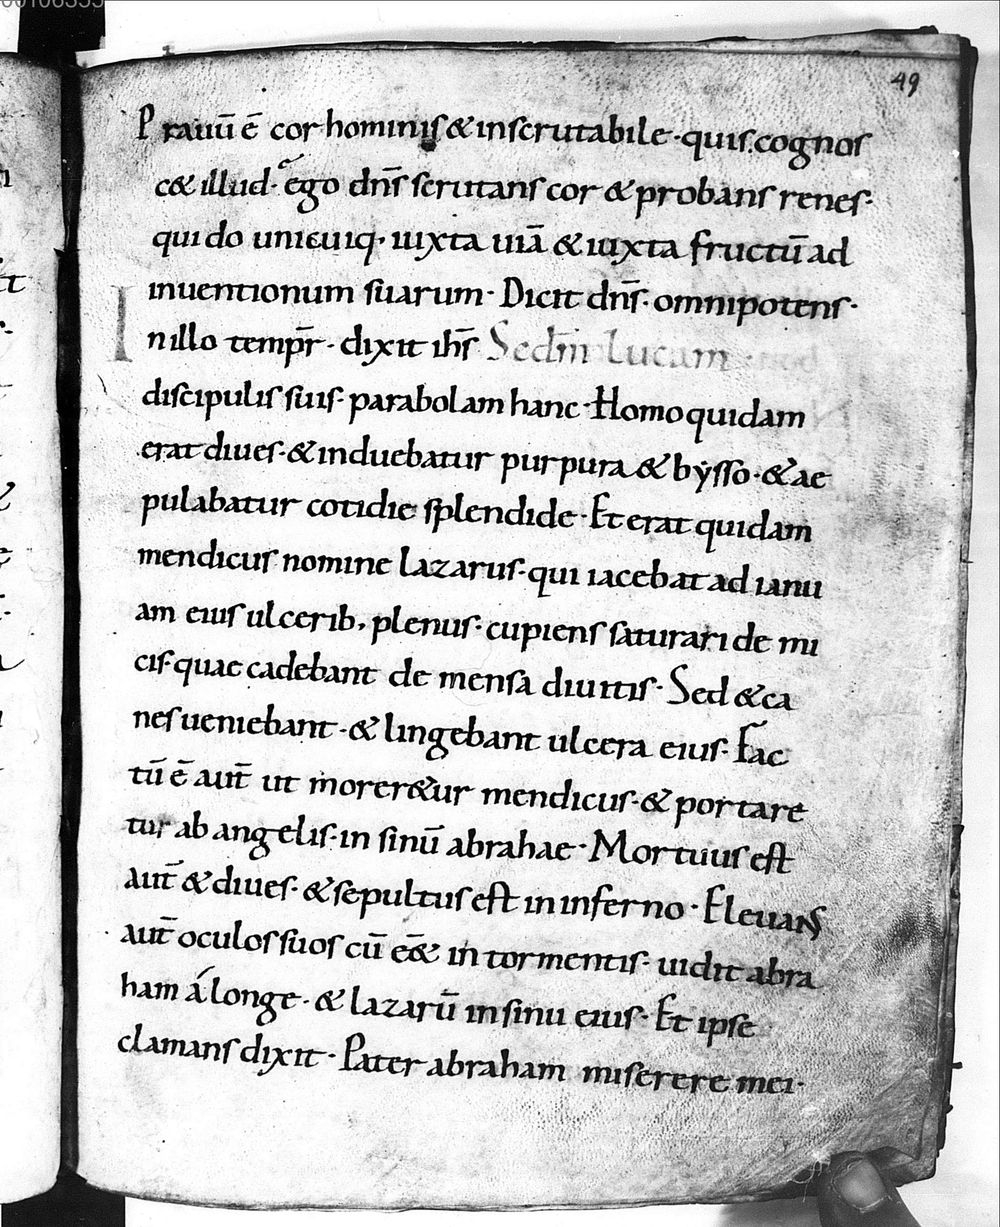 49
Prauū ē cor hominis & inscrutabile · quis cognos
c& illud · ego dn̄s scrutans cor & probans renes ·
qui do unicuiq· iuxta uiā & iuxta fructū ad
inuentionum suarum · Dicit dn̄s · omnipotens ·
In illo temp̄r · dixit ih̄s Sedm̄ Lucam
discipulis suis · parabolam hanc · Homo quidam
erat diues · & induebatur purpura & bẏsso · & ae
pulabatur cotidie splendide · Et erat quidam
mendicus nomine lazarus · qui iacebat ad ianu
am eius ulcerib, plenus · cupiens saturari de mi
cis quae cadebant de mensa diuitis · Sed & ca
nes ueniebant · & lingebant ulcera eius · Fac
tū ē aut̄ ut morer&ur mendicus · & portare
tur ab angelis · in sinū abrahae · Mortuus est
aut̄ & diues · & sepultus est in inferno · Eleuans
aut̄ oculos suos cū ēe& in tormentis · uidit abra
ham á longe · & lazarū in sinu eius · Et ipse
clamans dixit · Pater abraham miserere mei ·